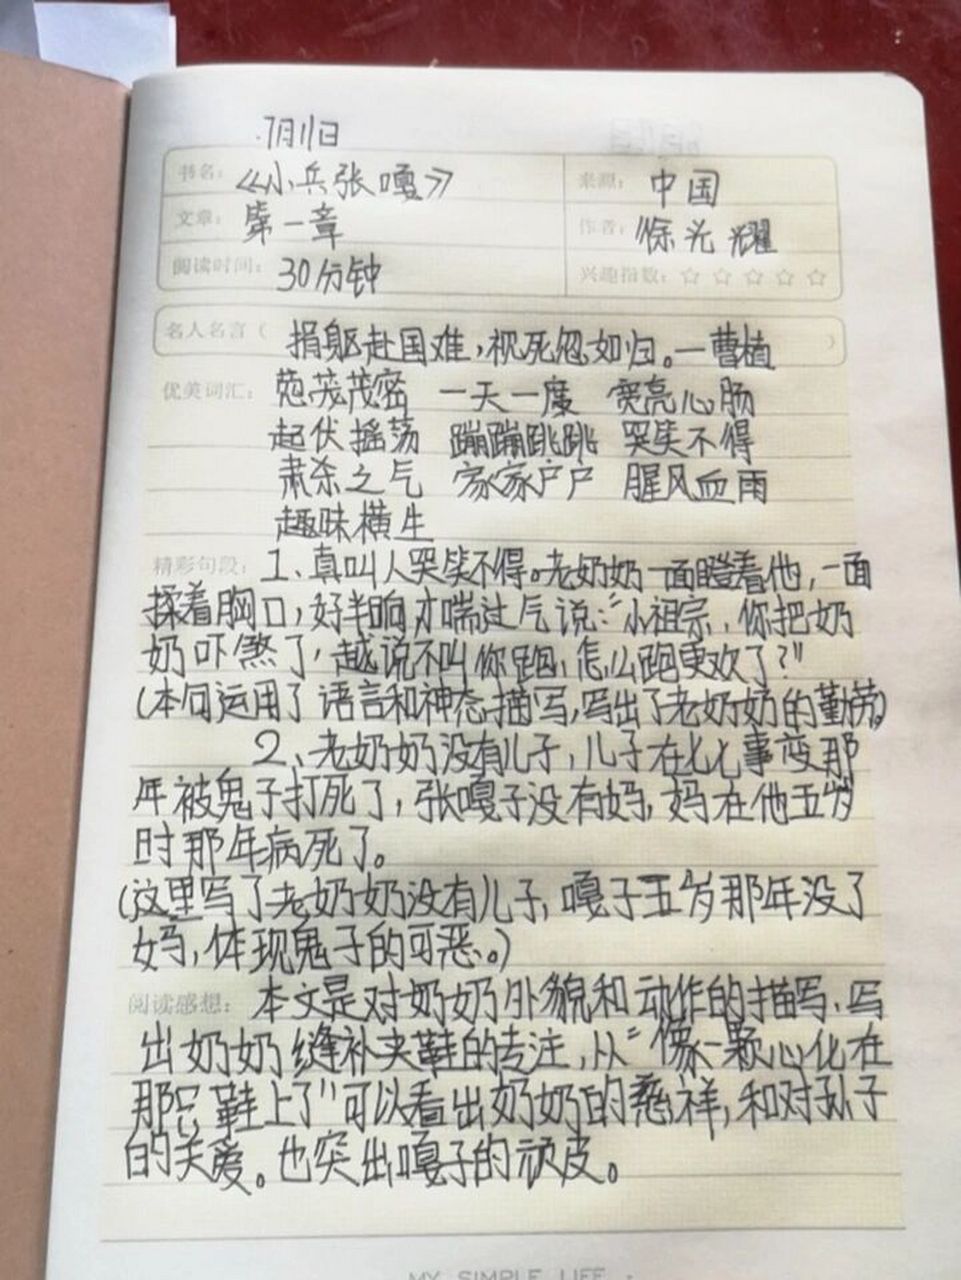 7月11日
书名：《小兵张嘎》 来源：中国
文章：第一章 作者：徐光耀
阅读时间：30分钟 兴趣指数：☆☆☆☆☆
名人名言（捐躯赴国难，视死忽如归。—曹植）
优美词汇：茂茂密 一天一度 宽亮心肠
起伏摇荡 蹦蹦跳跳 哭笑不得
肃杀之气 家家户户 腥风血雨
趣味横生
精彩句段：1、真叫人哭笑不得。老奶奶一面瞪着他，一面
揉着胸口，好半晌才喘过气说："小祖宗，你把奶
奶吓煞了，越说不叫你跑，怎么跑更欢了？"
（本句运用了语言和神态描写，写出了老奶奶的勤劳）
2、老奶奶没有儿子，儿子在七七事变那
年被鬼子打死了，张嘎子没有妈，妈在他五岁
时那年病死了。
（这里写了老奶奶没有儿子，嘎子五岁那年没了
妈，体现鬼子的可恶。）
阅读感想：本文是对奶奶外貌和动作的描写，写
出奶奶缝补夹鞋的专注，从"像一颗心化在
那只鞋上了"可以看出奶奶的慈祥，和对孙子
的关爱。也突出嘎子的顽皮。
MY SIMPLE LIFE